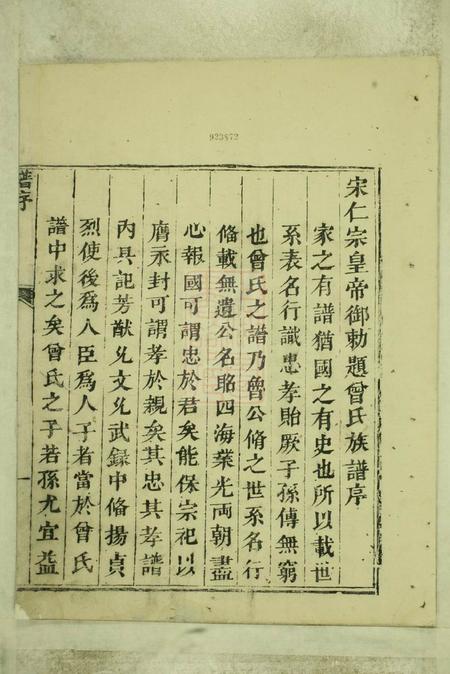 923572
宋仁宗皇帝御勅題曾氏族譜序
家之有譜猶國之有史也所以載世
系表名行識忠孝貽厥子孫傳無窮
也曾氏之譜乃魯公脩之世系名行
偹載無遺公名昭四海業光両朝盡
心報國可謂忠於君矣能保宗祀以
膺示封可謂孝於親矣其忠其孝譜
內具記芳猷允文允武録中偹揚貞
烈使後爲人臣爲人子者當於曾氏
譜中求之矣曾氏之子若孫尤宜益
譜序
一